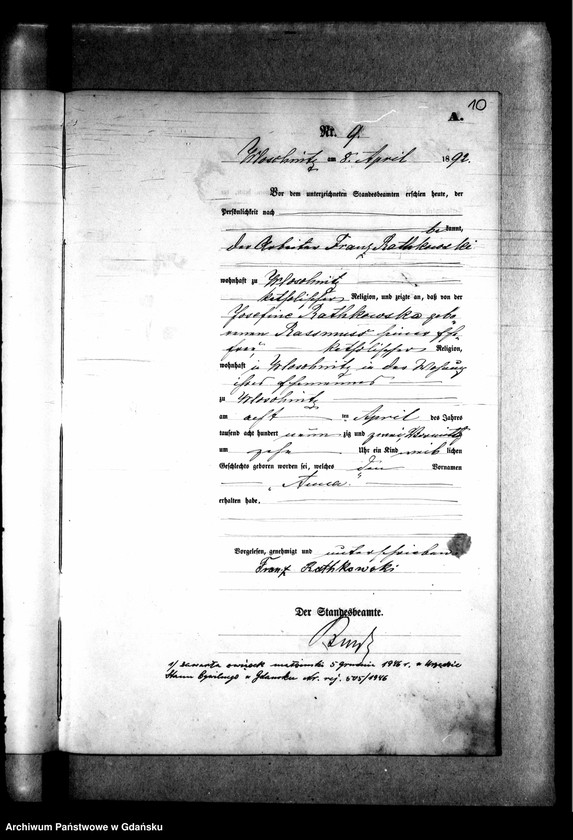 10
A.
Nr. 9.
Woschnitz am 8. April 1892.
Vor dem unterzeichneten Standesbeamten erschien heute, der
Persönlichkeit nach
bekannt,
der Arbeiter Franz Rathkowski
wohnhaft zu Woschnitz
katholischer Religion, und zeigte an, daß von der
Josefine Rathkowska gebo-
renen Rassmuss seiner Ehe-
frau katholischer Religion,
wohnhaft in Woschnitz in der
ihres Ehemannes
zu Woschnitz
am acht ten April des Jahres
tausend acht hundert neun zig und zwei Vormittags
um zehn Uhr ein Kind weib lichen
Geschlechts geboren worden sei, welches den Vornamen
„Anna“
erhalten habe.
Vorgelesen, genehmigt und unterschrieben
Franz Rathkowski
Der Standesbeamte.
1/ zawarła związek małżeński 5 Grudnia 1946 r. w Urzędzie
Stanu Cywilnego w Gdańsku nr. rej. 505/1946
Archiwum Państwowe w Gdańsku